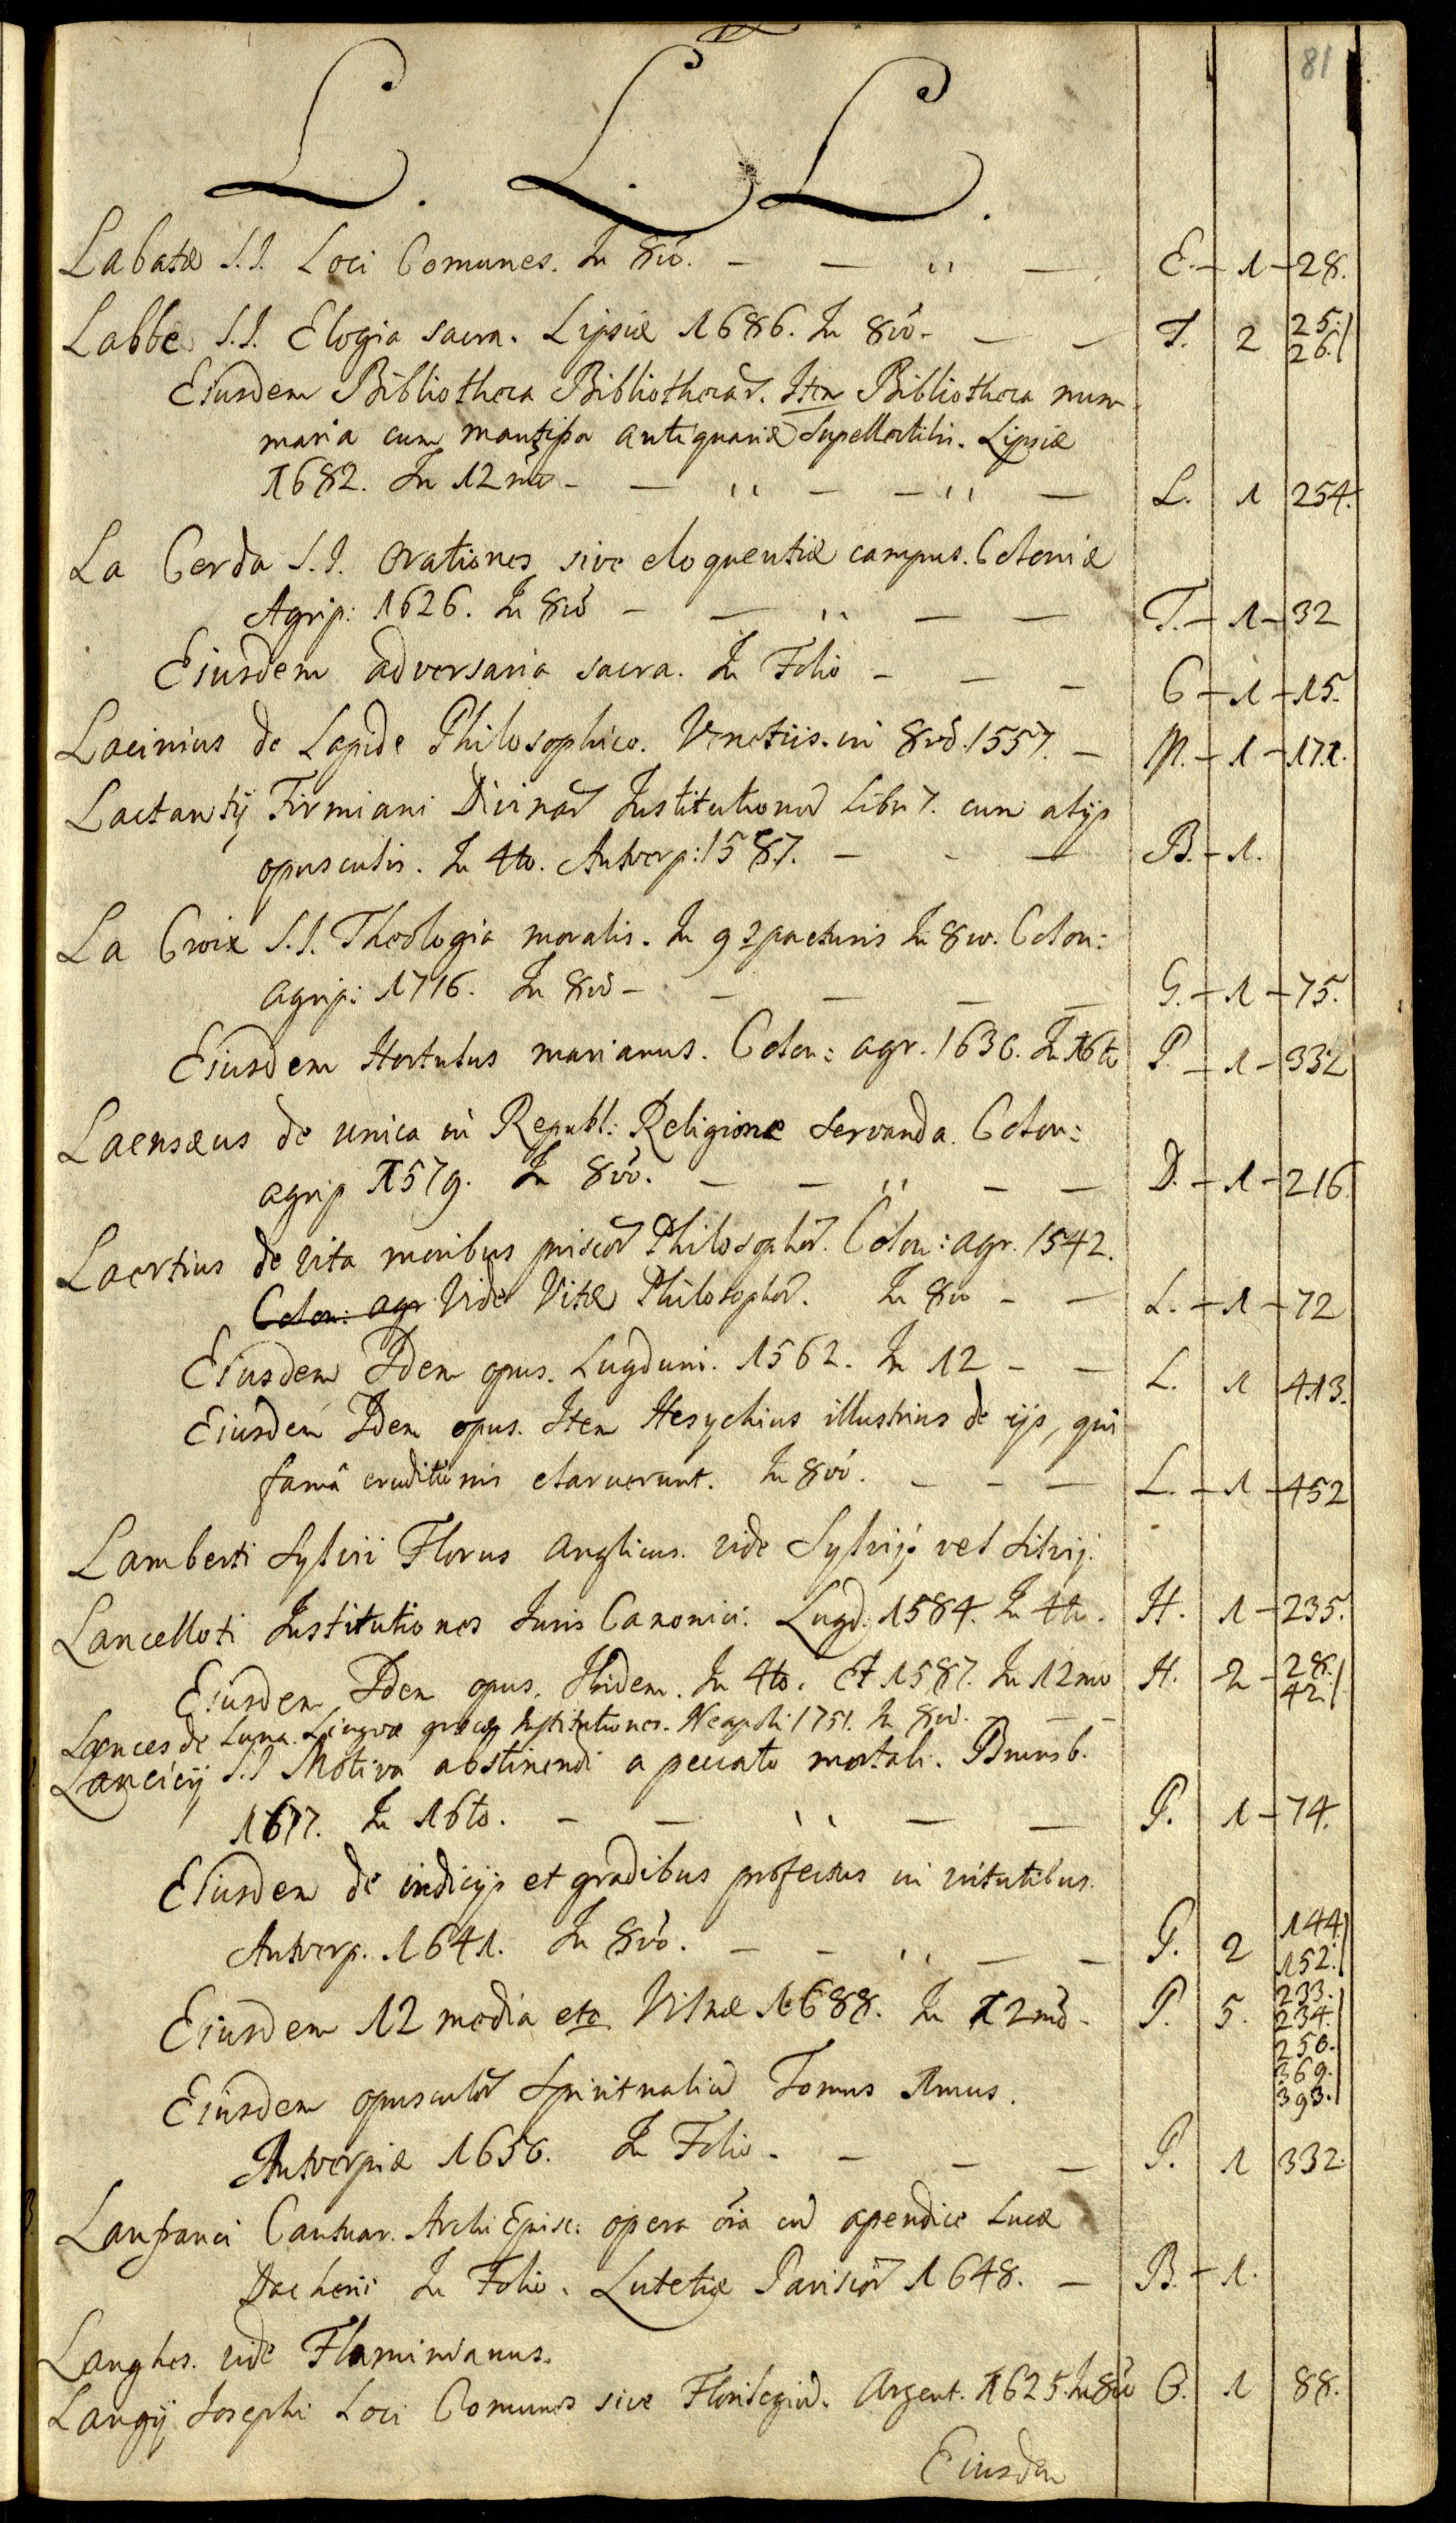 81
L. L. L.
Labatæ S.J. Loci Comunes. In 8vo. — — " — E. – 1 – 28.
Labbe S.J. Elogia sacra. Lipsiæ 1686. In 8vo – — — T. 2 25. 26.
Eiusdem Bibliotheca Bibliothecar̃. Item Bibliotheca num
maria cum mantissa antiquariæ Supellectilis. Lipsiæ
1682. In 12mo – — " — — " — L. 1 254.
La Cerda S.J. Orationes sive eloquentiæ campus. Coloniæ
Agrip: 1626. In 8vo — — " — — T. – 1 – 32
Eiusdem adversaria sacra. In Folio – — — C – 1 – 15.
Lacinius de Lapide Philosophico. Venetiis. in 8vo. 1557. — M. – 1 – 171.
Lactantij Firmiani Divinar̃ Institutionũ Libri 7. cum alijs
opusculis. In 4to. Antverp: 1587. — - — B. – 1.
La Croix S.J. Theologia moralis. In 9 2 pacturis In 8vo. Colon:
agrip: 1716. In 8vo – — — — — G. – 1 – 75.
Eiusdem Hortulus marianus. Colon: agr. 1630. In 16to P. – 1 – 332
Laensæus de unica in Republ: Religione servanda. Colon:
agrip 1579. In 8vo. — — " — — D. – 1 – 216
Laertius de vita moribus priscor̃ Philosophor̃. Colon: agr. 1542.
Colon: agr Vide Vitæ Philosophor̃. In 8vo – — L. – 1 – 72
Eiusdem Idem opus. Lugduni. 1562. In 12 – — L. 1 413.
Eiusdem Idem opus. Item Hesychius illustrius de ijs, qui
famâ eruditionis claruerunt. In 8vo. — - — L. – 1 – 452
Lamberti Sylvii Florus Anglicus. vide Sylvij vel Silvij.
Lancelloti Institutiones Juris Canonici. Lugd: 1584. In 4to. H. 1 – 235.
Eiusdem Idem opus. Ibidem. In 4to. Et 1587. In 12mo H. 2 – 28. 42.
Lances de Luna Linguæ græcæ Institutiones. Neapoli 1751. In 8vo. — -
Lancicij S.J Motiva abstinendi a peccato mortali. Brunsb.
1677. In 16to. – — " — — P. 1 – 74.
Eiusdem de indicijs et gradibus profectus in virtutibus.
Antverp. 1641. In 8vo. — - " — — P. 2 144. 152.
Eiusdem 12 media etc Vilnæ 1688. In 12mo – P. 5. 233. 234. 250. 369. 393.
Eiusdem opusculor̃ Spiritualiũ Tomus 1mus.
Antverpiæ 1650. In Folio – — — — P. 1 332.
Lanfranci Cantuar. Archi Episc: opera õia cũ apendice Lucæ
Dacherii In Folio. Lutetiæ Parisior̃ 1648. — B. – 1.
Langhes. vide Flaminianus.
Langij Josephi Loci Comunes sive Florilegiũ. Argent. 1625. In 8vo O. 1 88.
Eiusdem